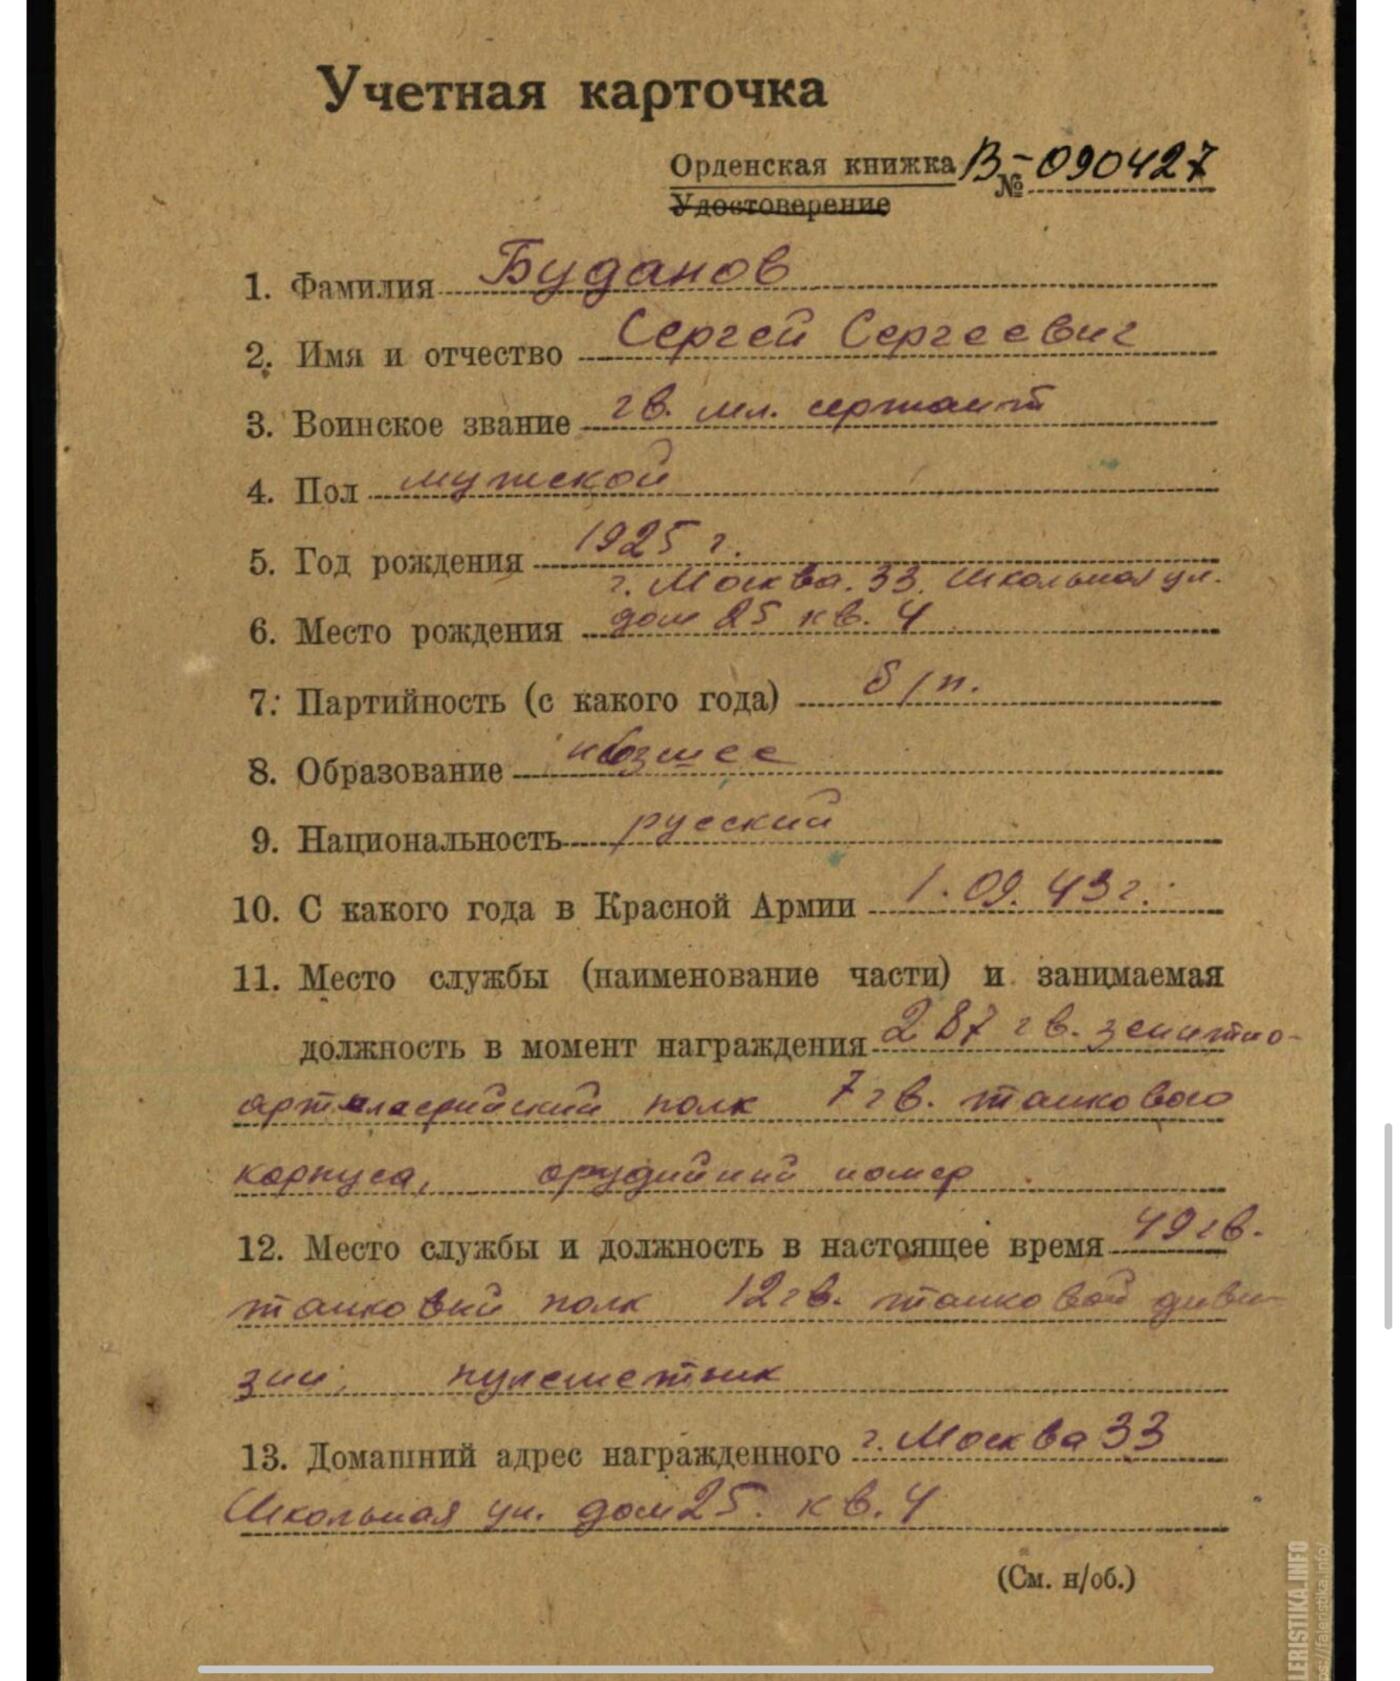 Учетная карточка
Орденская книжка В-№ 090427
Удостоверение
1. Фамилия Буданов
2. Имя и отчество Сергей Сергеевич
3. Воинское звание гв. мл. сержант
4. Пол мужской
5. Год рождения 1925 г.
г. Москва. 33. Школьная ул.
6. Место рождения дом 25 кв. 4
7. Партийность (с какого года) б/п.
8. Образование
9. Национальность русский
10. С какого года в Красной Армии 1.09.43г.
11. Место службы (наименование части) и занимаемая
должность в момент награждения 287 гв. зенитно-
артиллерийский полк 7 гв. танкового
корпуса, орудийный номер
12. Место службы и должность в настоящее время 49 гв.
танковый полк 12 гв. танковой диви-
зии, пулеметчик
13. Домашний адрес награжденного г. Москва 33
Школьная ул. дом 25. кв. 4
(См. н/об.)
LERISTIKA.INFO
ps://faleristika.info/